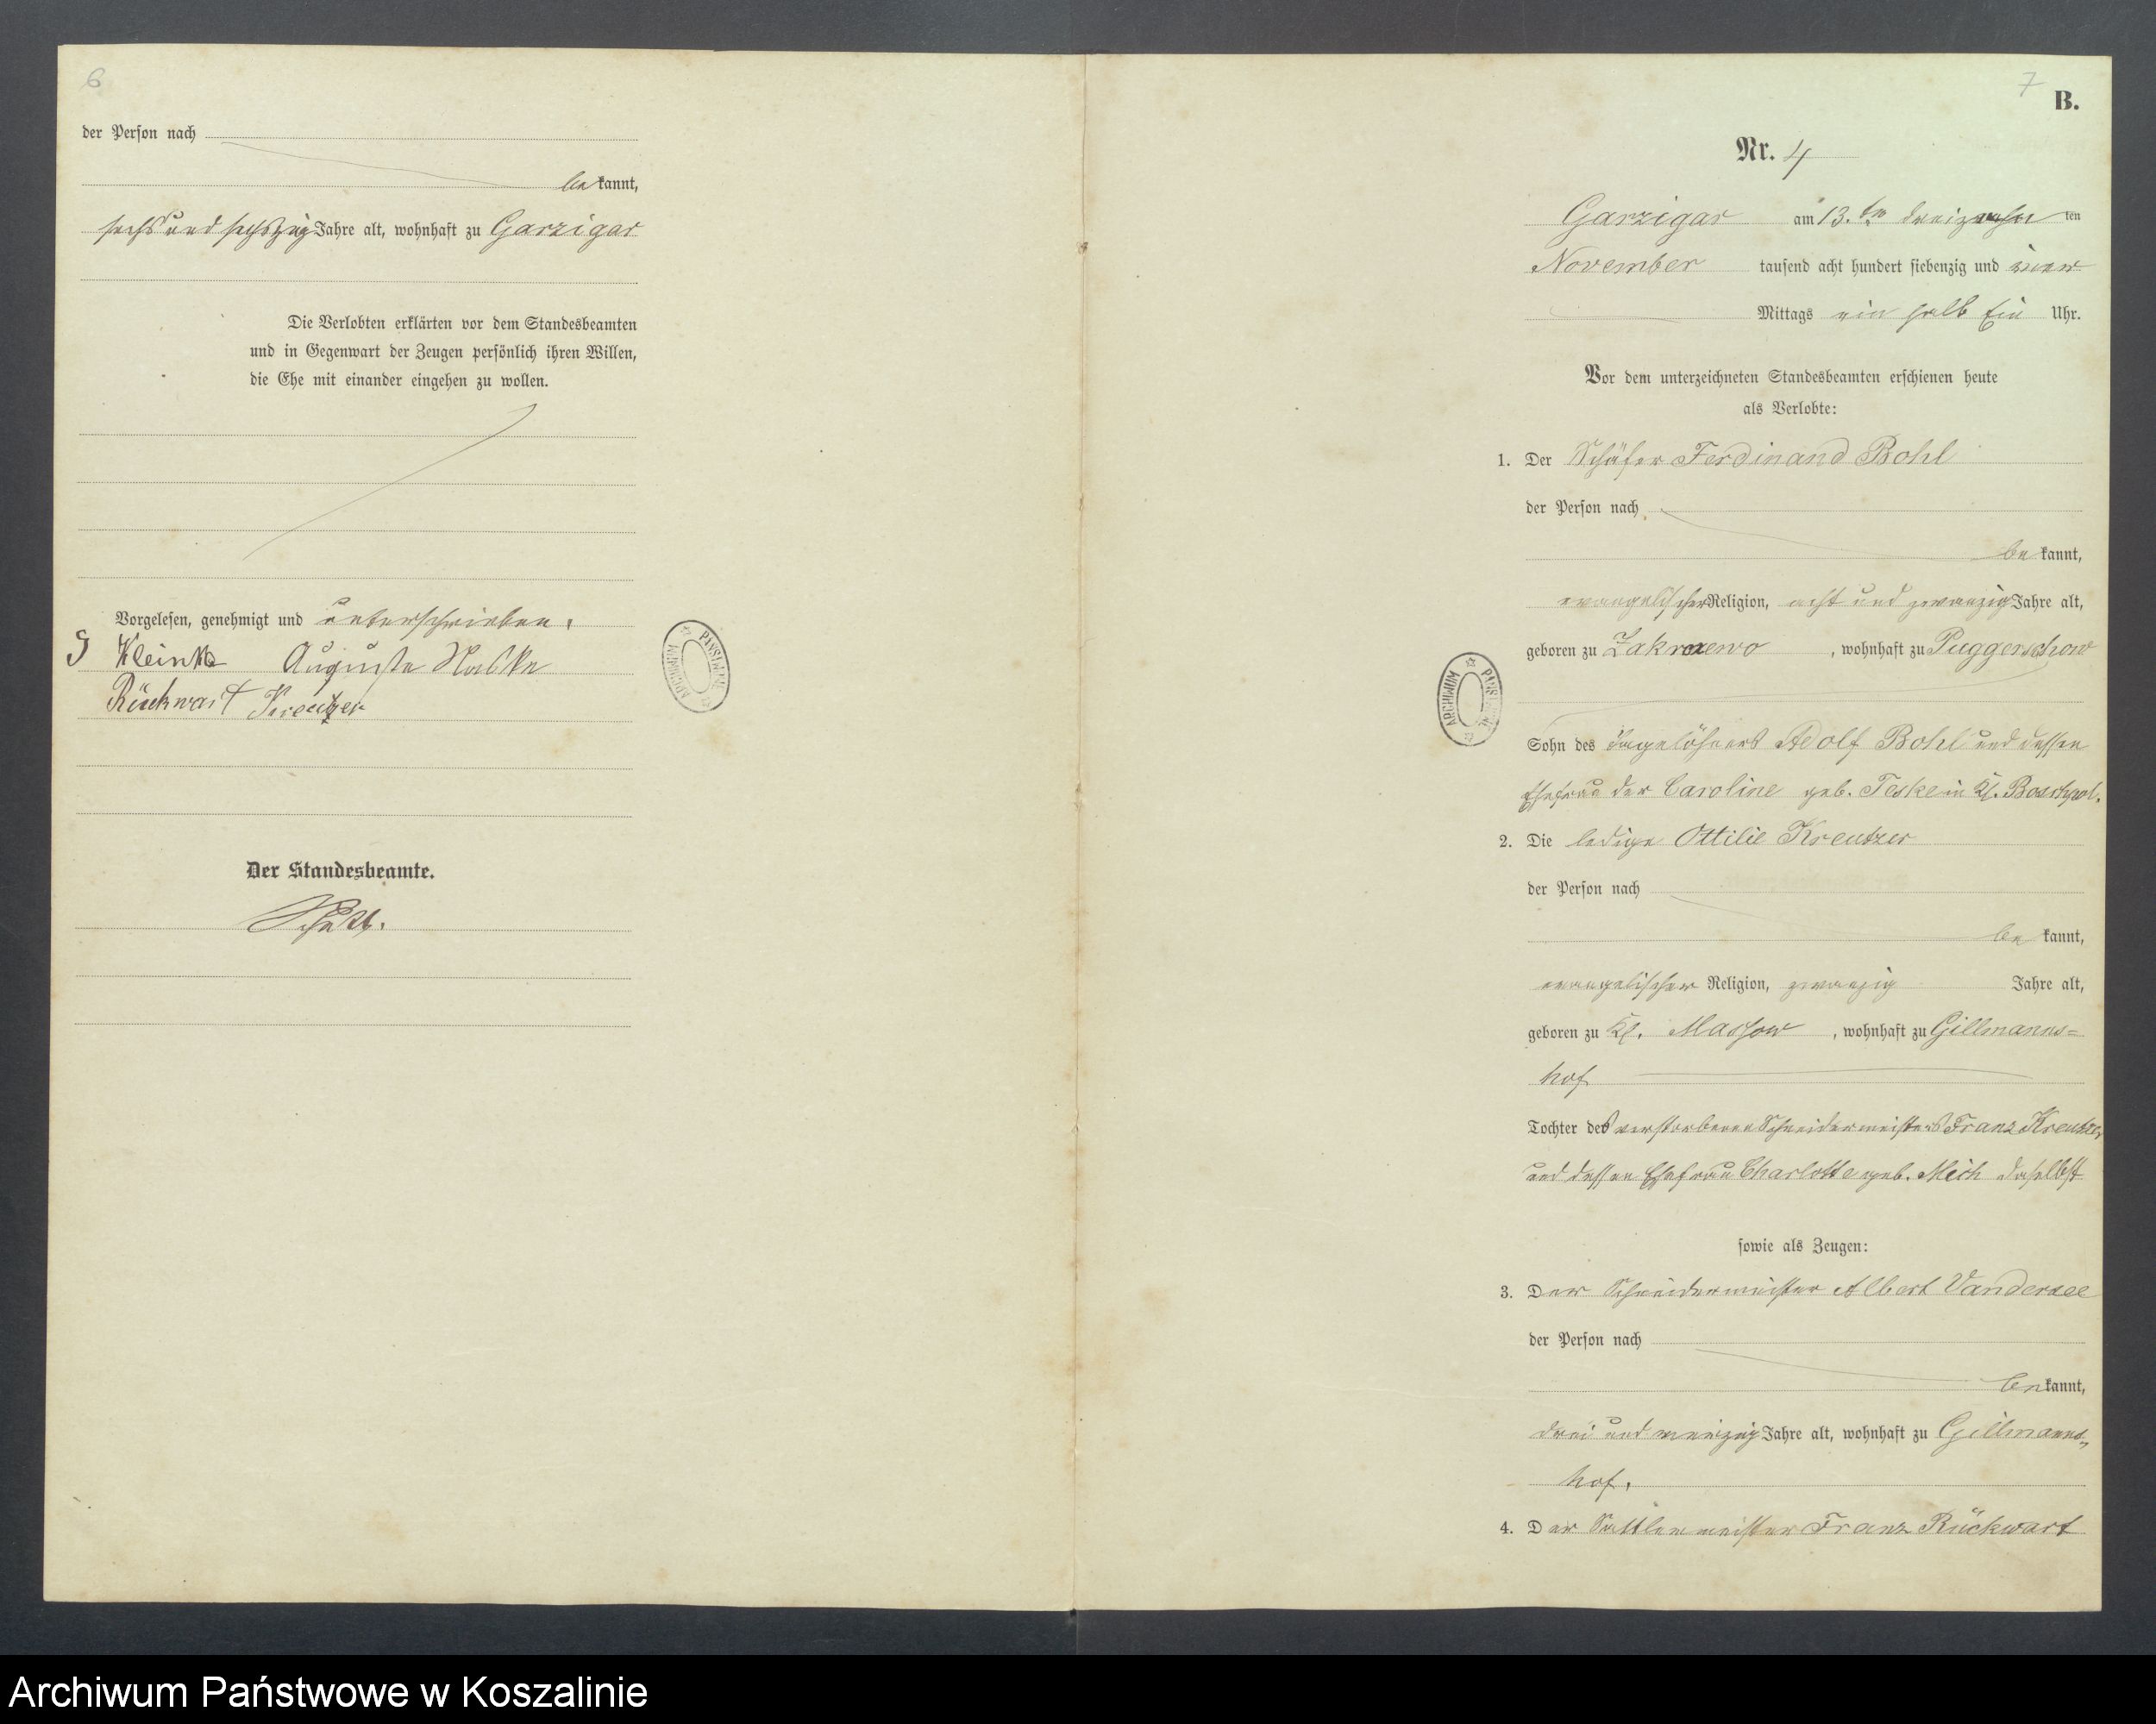 6
der Person nach
bekannt,
sechs und sechszig Jahre alt, wohnhaft zu Garzigar
Die Verlobten erklärten vor dem Standesbeamten
und in Gegenwart der Zeugen persönlich ihren Willen,
die Ehe mit einander eingehen zu wollen.
Vorgelesen, genehmigt und unterschrieben.
Auguste
Rückwart Kreutzer
Der Standesbeamte.
ARCHIWUM PAŃSTWOWE
7
B.
Nr. 4
Garzigar am 13.ten dreizehn ten
November tausend acht hundert siebenzig und vier
Mittags ein halb Ein Uhr.
Vor dem unterzeichneten Standesbeamten erschienen heute
als Verlobte:
1. Der Schäfer Ferdinand Bohl
der Person nach
bekannt,
evangelischer Religion, acht und zwanzig Jahre alt,
geboren zu Zakrzewo, wohnhaft zu Puggerschow
ARCHIWUM PAŃSTWOWE
Sohn des Tagelöhners Adolf Bohl und dessen
Ehefrau der Caroline geb. Teske in Kl. Boschpol.
2. Die ledige Ottilie Kreutzer
der Person nach
bekannt,
evangelischer Religion, zwanzig Jahre alt,
geboren zu Kl. Massow, wohnhaft zu Gillmanns=
hof
Tochter des verstorbenen Schneidermeisters Franz Kreutzer
und dessen Ehefrau Charlotte geb. Mich daselbst
sowie als Zeugen:
3. Der Schneidermeister Albert Vandersee
der Person nach
bekannt,
drei und vierzig Jahre alt, wohnhaft zu Gillmanns=
hof.
4. Der Sattlermeister Franz Rückwart
Archiwum Państwowe w Koszalinie